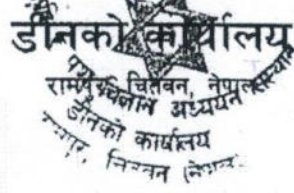 डीनको कार्यालय
रामपुर, चितवन, नेपाल
अध्ययन संस्थान
डीनको कार्यालय
चितवन (नेपाल)